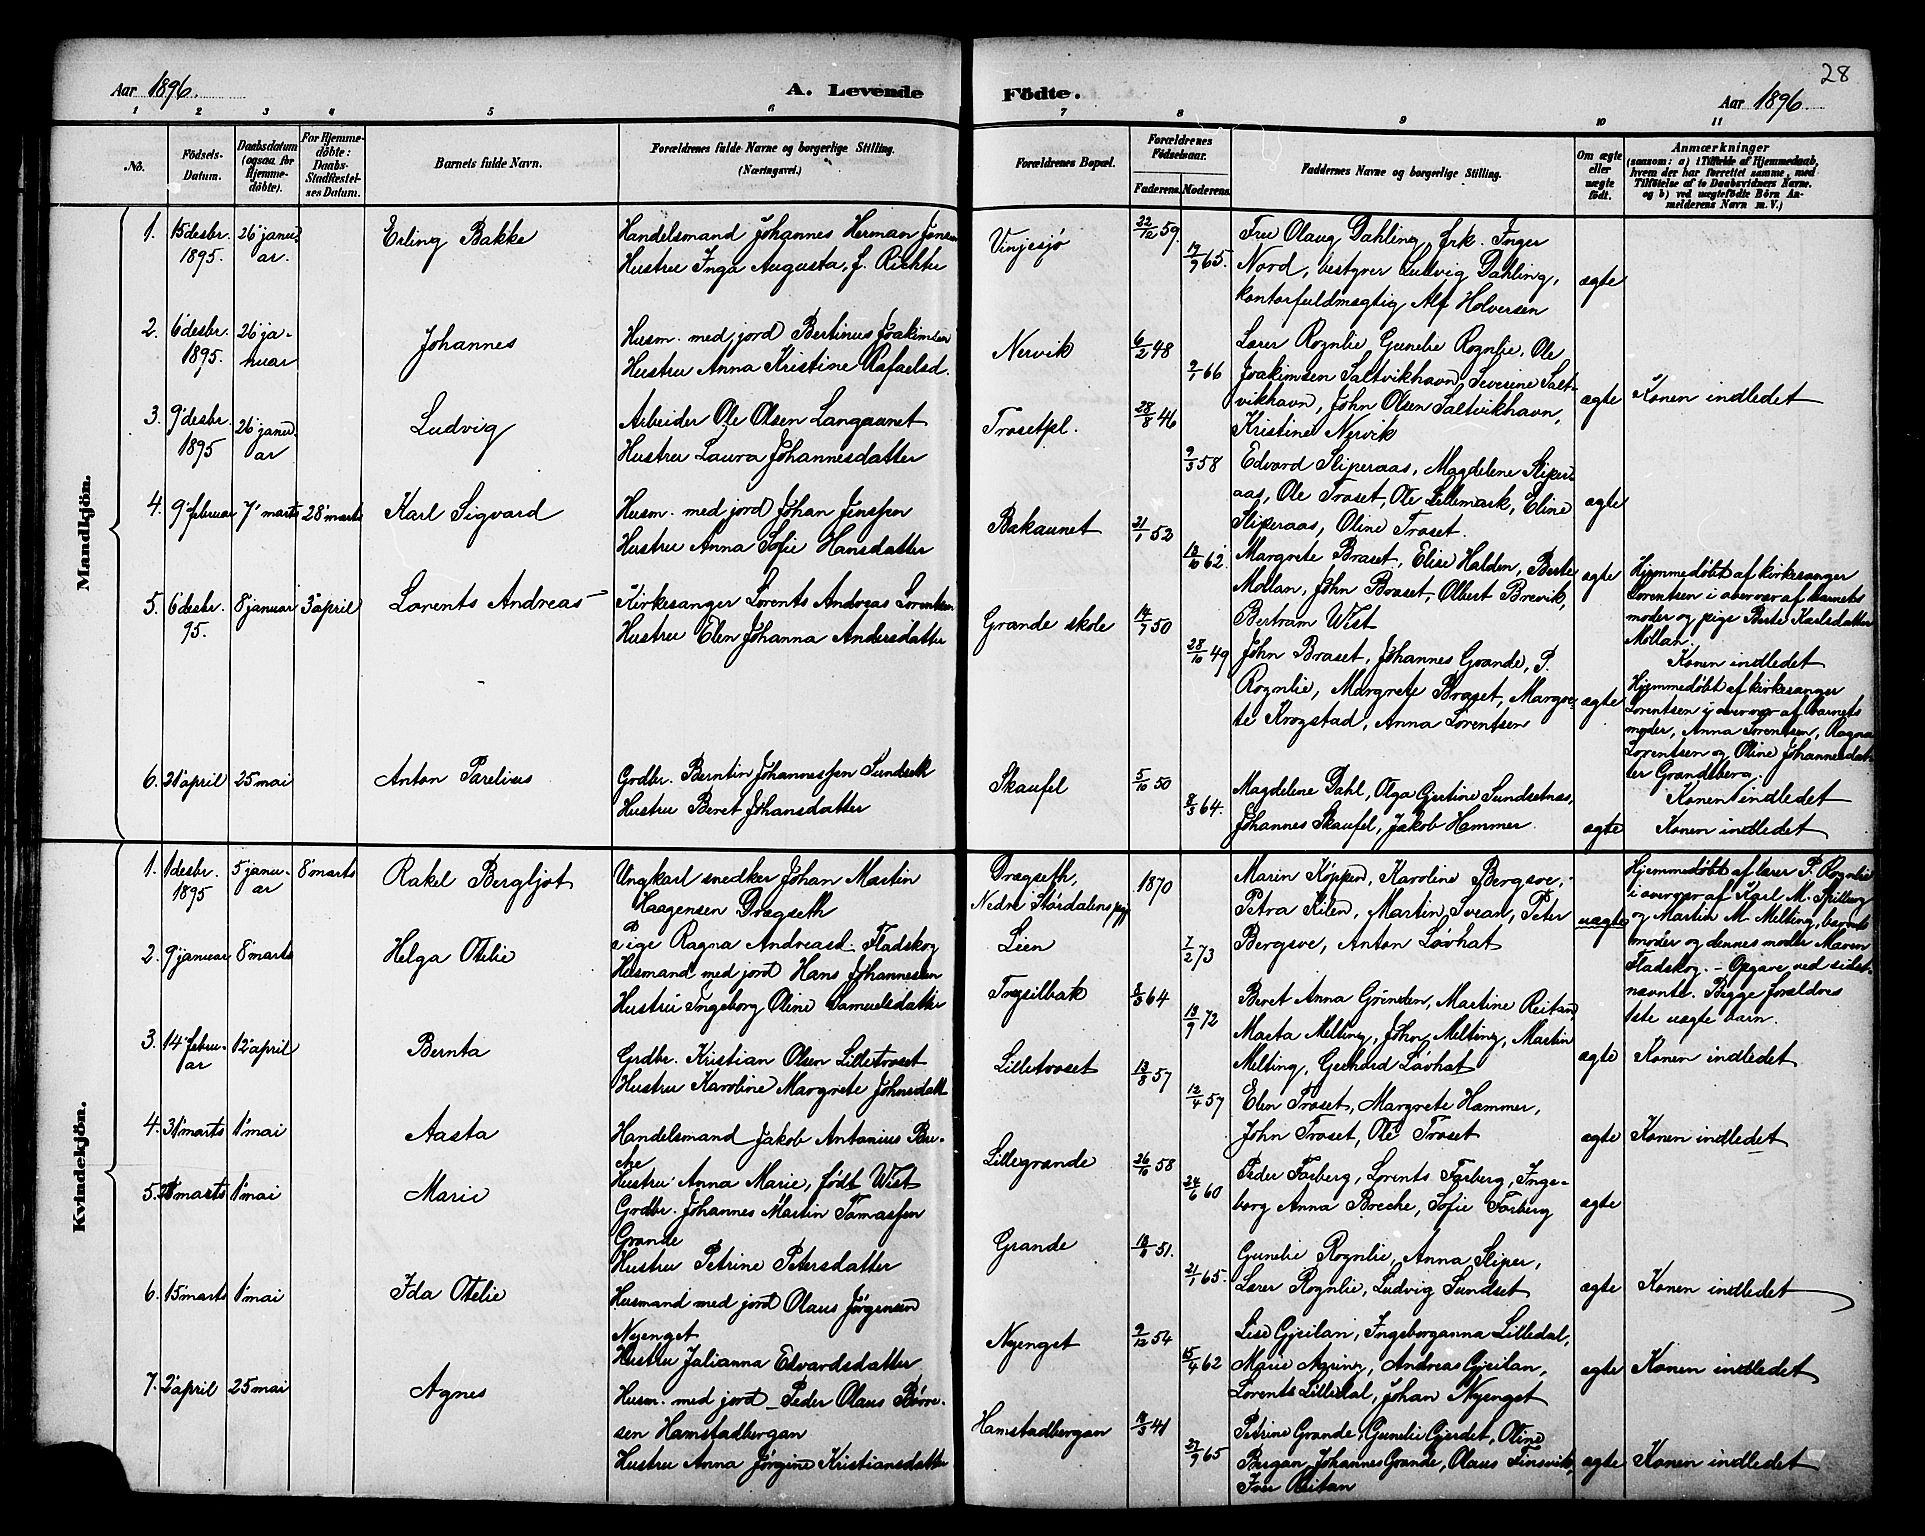 28
Aar 1896.
A. Levende
Födte.
Aar 1896
1 2 3 4 5 6 7 8 9 10 11
No.
Födsels-Datum.
Daabsdatum (ogsaa for Hjemmedöbte).
For Hjemmedöbte: Daabs-Stadfæstelses Datum.
Barnets fulde Navn.
Forældrenes fulde Navne og borgerlige Stilling.
(Næringsvei.)
Forældrenes Bopæl.
Forældrenes Födselsaar.
Faderens. Moderens.
Faddernes Navne og borgerlige Stilling.
Om ægte eller uægte födt.
Anmærkninger
(saasom: a) i Tilfælde af Hjemmedaab, hvem der har forrettet samme, med Tilföielse af to Daabsvidners Navne. og b) ved uægtefödte Börn Anmelderens Navn m. V.)
Mandkjön.
1. 15 desbr. 1895. 26 januar. Erling Bakke
Handelsmand Johannes Herman Jensen
Hustru Inga Augusta, f. Richter
Vinjesjø 22/12 59. 19/9 65.
Fru Olaug Dahling, frk. Inger
Nord, bestyrer Ludvig Dahling,
kontorfuldmægtig Alf Holversen
ægte
2. 6 desbr. 1895. 26 januar Johannes
Husm. med jord Bertinus Joakimsen
Hustru Anna Kristine Rafaelsd.
Nervik 6/2 48 9/1 66
Lærer Rognlie, Gunelie Rognlie, Ole
Joakimsen Saltvikhavn, Severine Salt-
vikhavn, John Olsen Saltvikhavn,
Kristine Nervik
ægte Konen indledet
3. 9 desbr. 1895 26 januar Ludvig
Arbeider Ole Olsen Langaunet
Hustru Laura Johannesdatter
Trosetpl. 28/8 46 9/3 58
Edvard Sliperaas, Magdelene Sliper-
aas, Ole Troset, Ole Lillemark, Eline
Sliperaas, Oline Troset.
ægte
4. 9 februar 7 marts 28 marts Karl Sigvard
Husm. med jord Johan Jenssen
Hustru Anna Sofie Hansdatter
Bakaunet 21/1 52 13/10 62.
Margrete Braset, Elise Halden, Berte
Mollan, John Braset, Olbert Brevik,
Bertram Wist
ægte
Hjemmedøbt af kirkesanger
Lorentsen i overvær af barnets
moder og pige Berte Karlsdatter
Mollan.
Konen indledet
5. 6 desbr. 95. 8 januar 3 april Lorents Andreas
Kirkesanger Lorents Andreas Lorentsen
Hustru Elen Johanna Andersdatter
Grande skole 14/7 50 28/10 49
John Braset, Johannes Grande, P.
Rognlie, Margrete Braset, Margre-
te Krogstad, Anna Lorentsen
ægte
Hjemmedøbt af kirkesanger
Lorentsen i overvær af barnets
moder, Anna Lorentsen, Ragna
Lorentsen og Oline Johannesdat-
ter Grandsberg.
Konen indledet
6. 21 april 25 mai Anton Parelius
Grdbr. Berntin Johannessen Sundsetk
Hustru Beret Johansdatter
Skaufel 5/10 50 8/3 64.
Magdelene Dahl, Olga Gjertine Sundsetnæs,
Johannes Skaufel, Jakob Hammer.
ægte Konen indledet
Kvindekjön.
1. 1 desbr. 1895 5 januar 8 marts Rakel Bergljot
Ungkarl snedker Johan Martin
Haagensen Drægseth
Pige Ragna Andreasd. Fladskog
Drægseth,
Nedre Stördalens pgj
Lien
1870 7/2 73
Marin Köppen, Karoline Bergsve,
Petra Kilen, Martin Svean, Peter
Bergsve, Anton Løvhat
uægte
Hjemmedøbt af lærer P. Rognlie
i overvær af Karl M. Spilberg
og Martin M. Melting, barnets
moder og dennes moder Maren
Fladskog. – Opgave ved sidst-
nævnte. Begge forældres
1ste uægte barn.
2. 9 januar 8 marts Helga Otelie
Husmand med jord Hans Johannessen
Hustru Ingeborg Oline Samuelsdatter
Trysilbak 8/3 64 13/9 72
Beret Anna Grønden, Martine Reitan,
Marta Melting, John Melting, Martin
Melting, Gerhard Løvhat
ægte Konen indledet
3. 14 februar 12 april Bernta
Grdbr. Kristian Olsen Lilletroset
Hustru Karoline Margrete Johnsdatt
Lilletroset 13/8 57 12/4 57
Elen Troset, Margrete Hammer,
John Troset, Ole Troset
ægte Konen indledet
4. 31 marts 1 mai Aasta
Handelsmand Jakob Antonius Bre-
che
Hustru Anna Marie, født Wist
Lillegrande 26/10 58 24/6 60
Peder Farberg, Lorents Farberg, Inge-
borg Anna Breche, Sofie Farberg
ægte
5. marts 1 mai Marie
Grdbr. Johannes Martin Tomassen
Grande
Hustru Petrine Petersdatter
Grande 51. 21/1 65.
Gunelie Rognlie, Anna Sliper,
Lærer Rognlie, Ludvig Sundset
ægte Konen indledet
6. 15 marts 1 mai Ida Otelie
Husmand med jord Olaus Jørgensen
Nyenget
Hustru Julianna Edvardsdatter
Nyenget 9/12 54 15/4 62
Lise Gjeilan, Ingeborganna Lilledal,
Marie Aguing, Andreas Gjeilan,
Lorents Lilledal, Johan Nyenget
ægte Konen indledet
7. 2 april 25 mai Agnes
Husm. med jord – Peder Olaus Børre-
sen Hamstadbergan
Hustru Anna Jørgine Kristiansdatter
Hamstadbergan 41 27/9 65
Petrine Grande, Gunelie Gjerdet, Oline
Bergan, Johannes Grande, Olaus Finsvik,
Iver Reitan
ægte Konen indledet